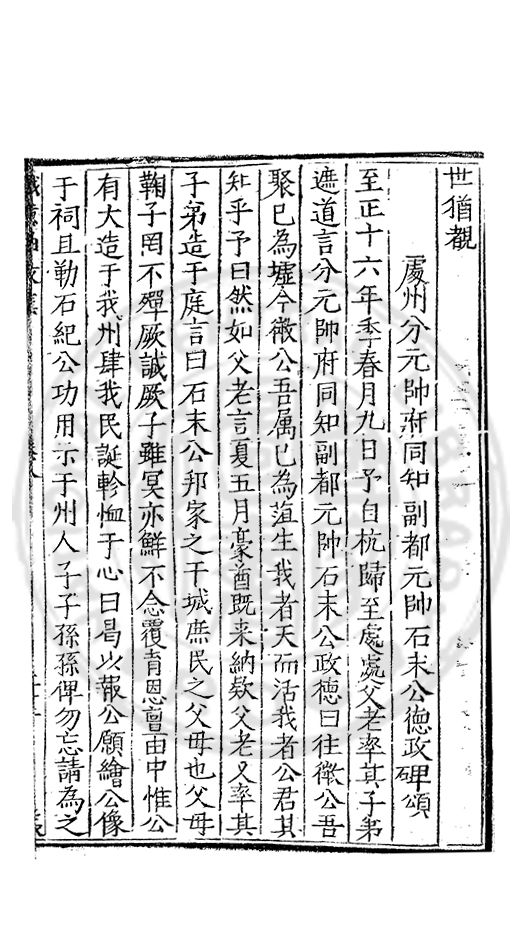 世猶觀
處州分元帥府同知副都元帥石末公德政碑頌
至正十六年季春月九日予自杭歸至處處父老率其子弟
遮道言分元帥府同知副都元帥石末公政德曰往微公吾
聚已為墟今微公吾属已為菹生我者天而活我者公君其
知乎予曰然如父老言夏五月豪酋既来納欵父老又率其
子弟造于庭言曰石末公邦家之干城庶民之父母也父母
鞠子罔不殫厥誠厥子雖冥亦鮮不念覆育恩亶由中惟公
有大造于我州肆我民誕軫恤于心曰曷以報公願繪公像
于祠且勒石紀公功用示于州人子子孫孫俾勿忘請為之